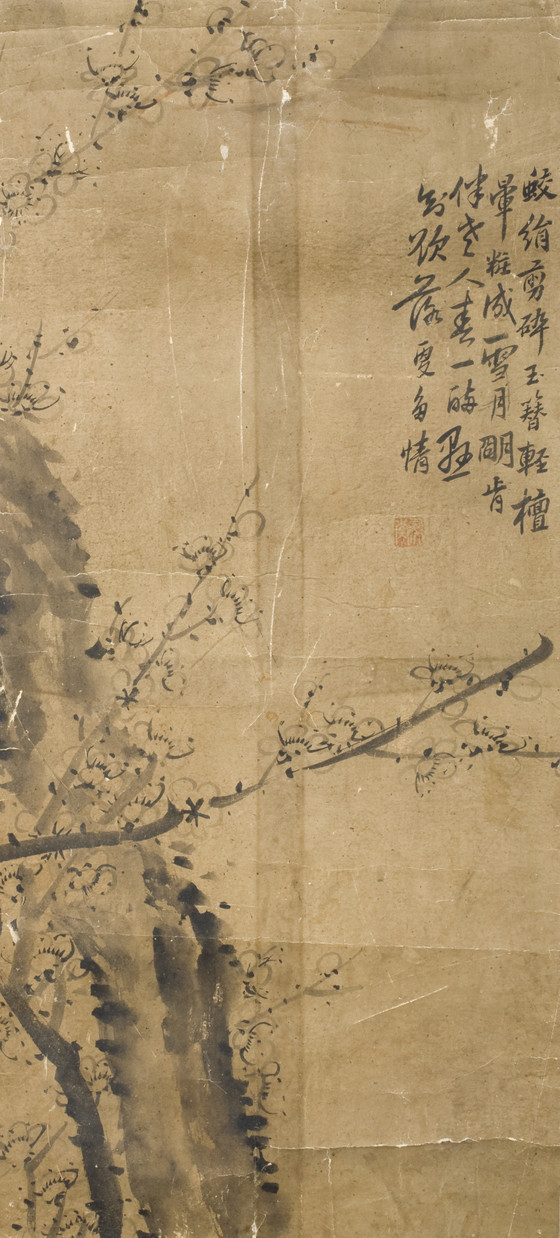 鲛绡剪碎玉簪輕檀
暈粧成雪月明肯
伴老人春一醉愁
欲落更多情